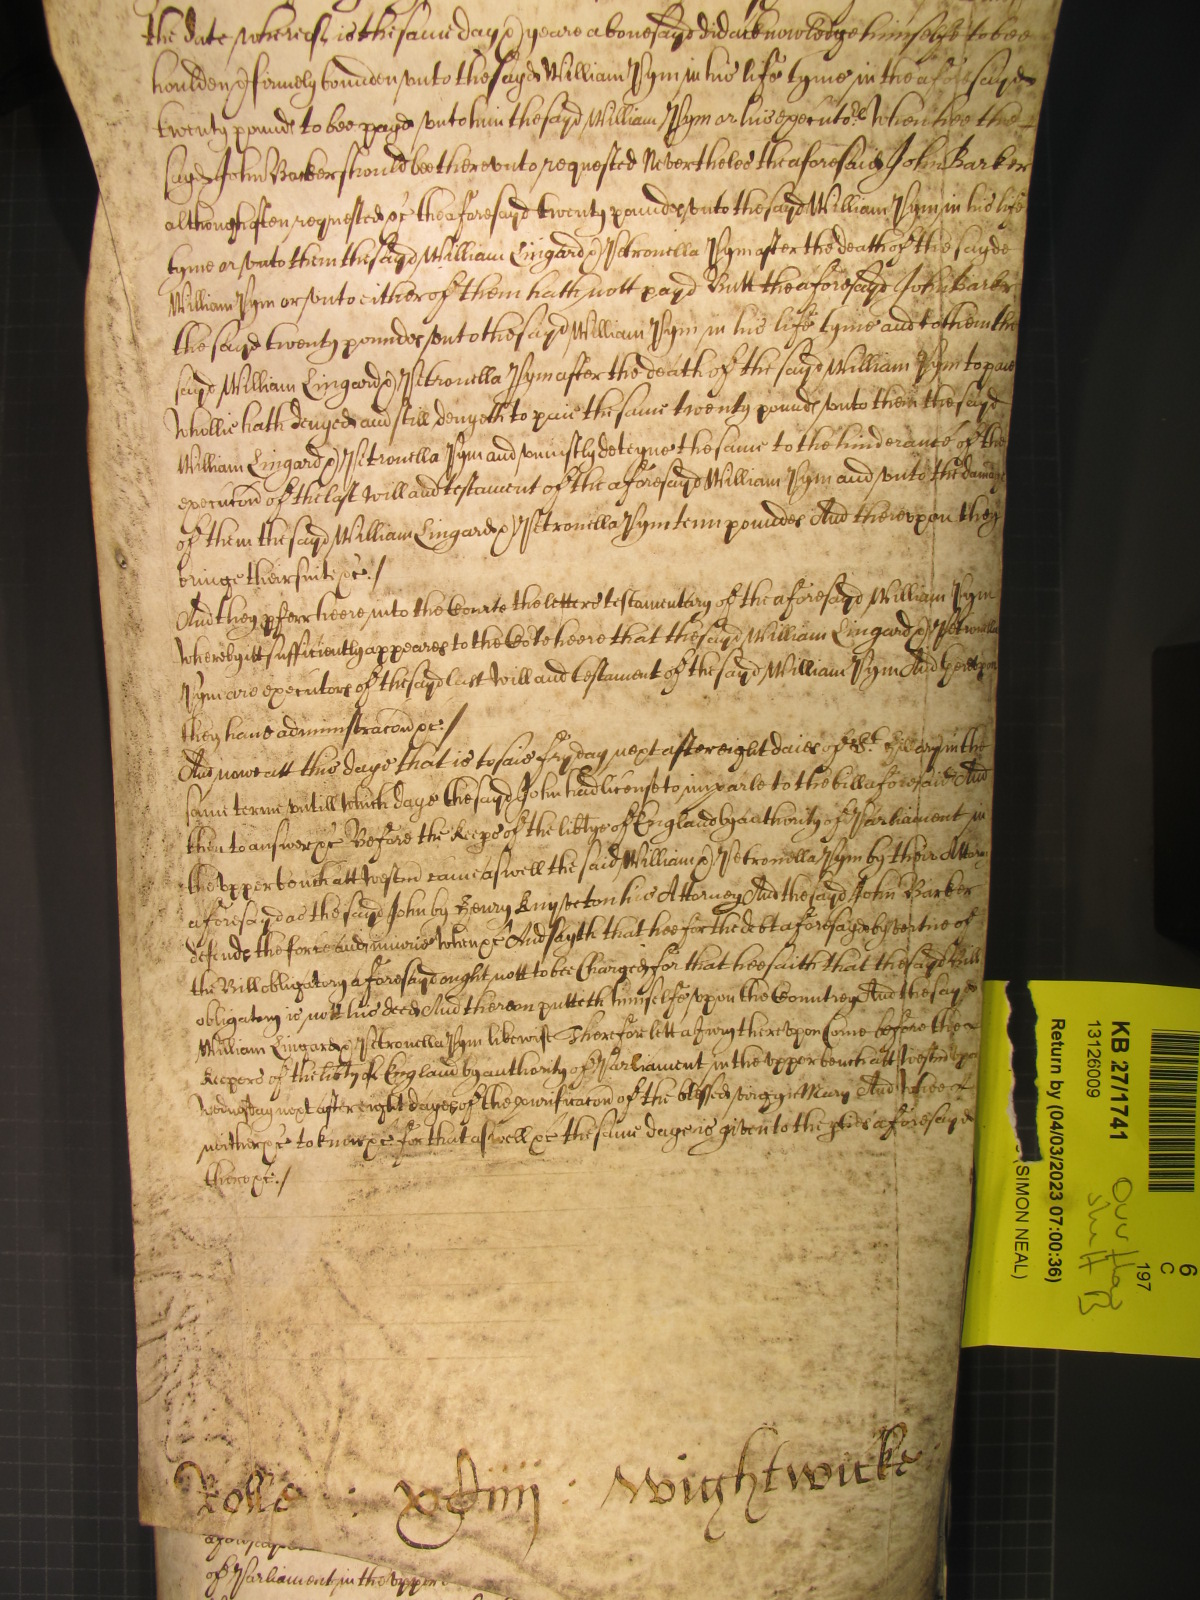 the date whereof is the same day & yeare abovesayd did acknowledge himselfe to bee
houlden & firmely bounden unto the sayd William Pym in his life tyme in the aforesayd
twenty pounds to bee payd unto him the sayd William Pym or his executors when hee the
sayd John Barker should bee thereunto requested Nevertheles the aforesaid John Barker
although often requested &c the aforesayd twenty poundes unto the sayd William Pym in his life
tyme or unto them the sayd William Lingard & Petronella Pym after the death of the sayde
William Pym or unto either of them hath nott payd Butt the aforesayd John Barker
the sayd twenty poundes unto the sayd William Pym in his life tyme and to them the
sayd William Lingard & Petronella Pym after the death of the sayd William Pym to paie
whollie hath denyed and still denyeth to paie the same twenty pounds unto them the sayd
William Lingard & Petronella Pym and uniustly deteyne the same to the hinderance of the
execucon of the last will and testament of the aforesayd William Pym and unto the damage
of them the sayd William Lingard & Petronella Pym tenn poundes And thereupon they
bringe their suite &c./
And they pferr heere into the Courte the letters testamentary of the aforesayd William Pym
whereby itt sufficiently appeares to the Cote heere that the sayd William Lingard & Petronella
Pym are executors of the sayd last will and testament of the sayd William Pym And thereupon
they have administracon &c./
And nowe att this daye that is to saie fryday next after eight daies of St. Hillary in the
same terme untill which daye the sayd John had license to imparle to the bill aforesaid And
then to answer &c Before the Keeps of the libtye of England by authority of Parliament in
the upper bench att Westm came aswell the said William & Petronella Pym by their Attorn
aforesayd as the sayd John by Henry Knyveton his Attorney And the sayd John Barker
defends the force and iniurie when &c And sayth that hee for the debt aforesayd by vertue of
the Bill obligatory aforesayd ought nott to bee Charged for that hee saith that the sayd Bill
obligatory is nott his deed And thereon putteth himselfe upon the Countrey And the sayd
William Lingard & Petronella Pym likewise Therefore lett a Jury thereupon come before the
Keepers of the libty of England by authority of Parliament in the upper bench att Westm upon
wednesday next after eight dayes of the purificacon of the blessed virgin Mary And whoe
neither &c to know &c for that aswell &c the same daye is given to the pties aforesayd
there &c./
Rolle : Wightwicke
of Parliament in the upper
6
C
197
KB 27/1741
13126009
Return by (04/03/2023 07:00:36)
(SIMON NEAL)